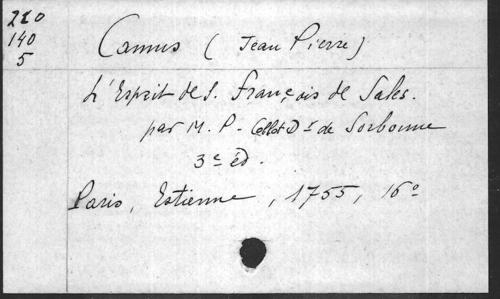 210
140
5
Camus (Jean Pierre)
L'Esprit de S. François de Sales.
par M. P. Collot Dr de Sorbonne
3e éd.
Paris, Estienne, 1755, 16°